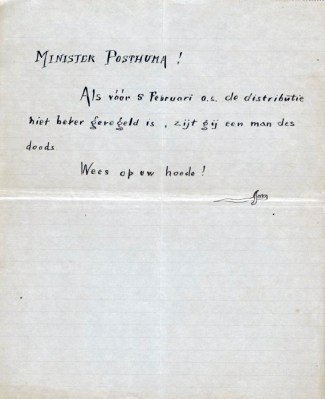 MINISTER POSTHUMA !
Als vóór 8 Februari a.s. de distributie
niet beter geregeld is, zijt gij een man des
doods.
Wees op uw hoede !